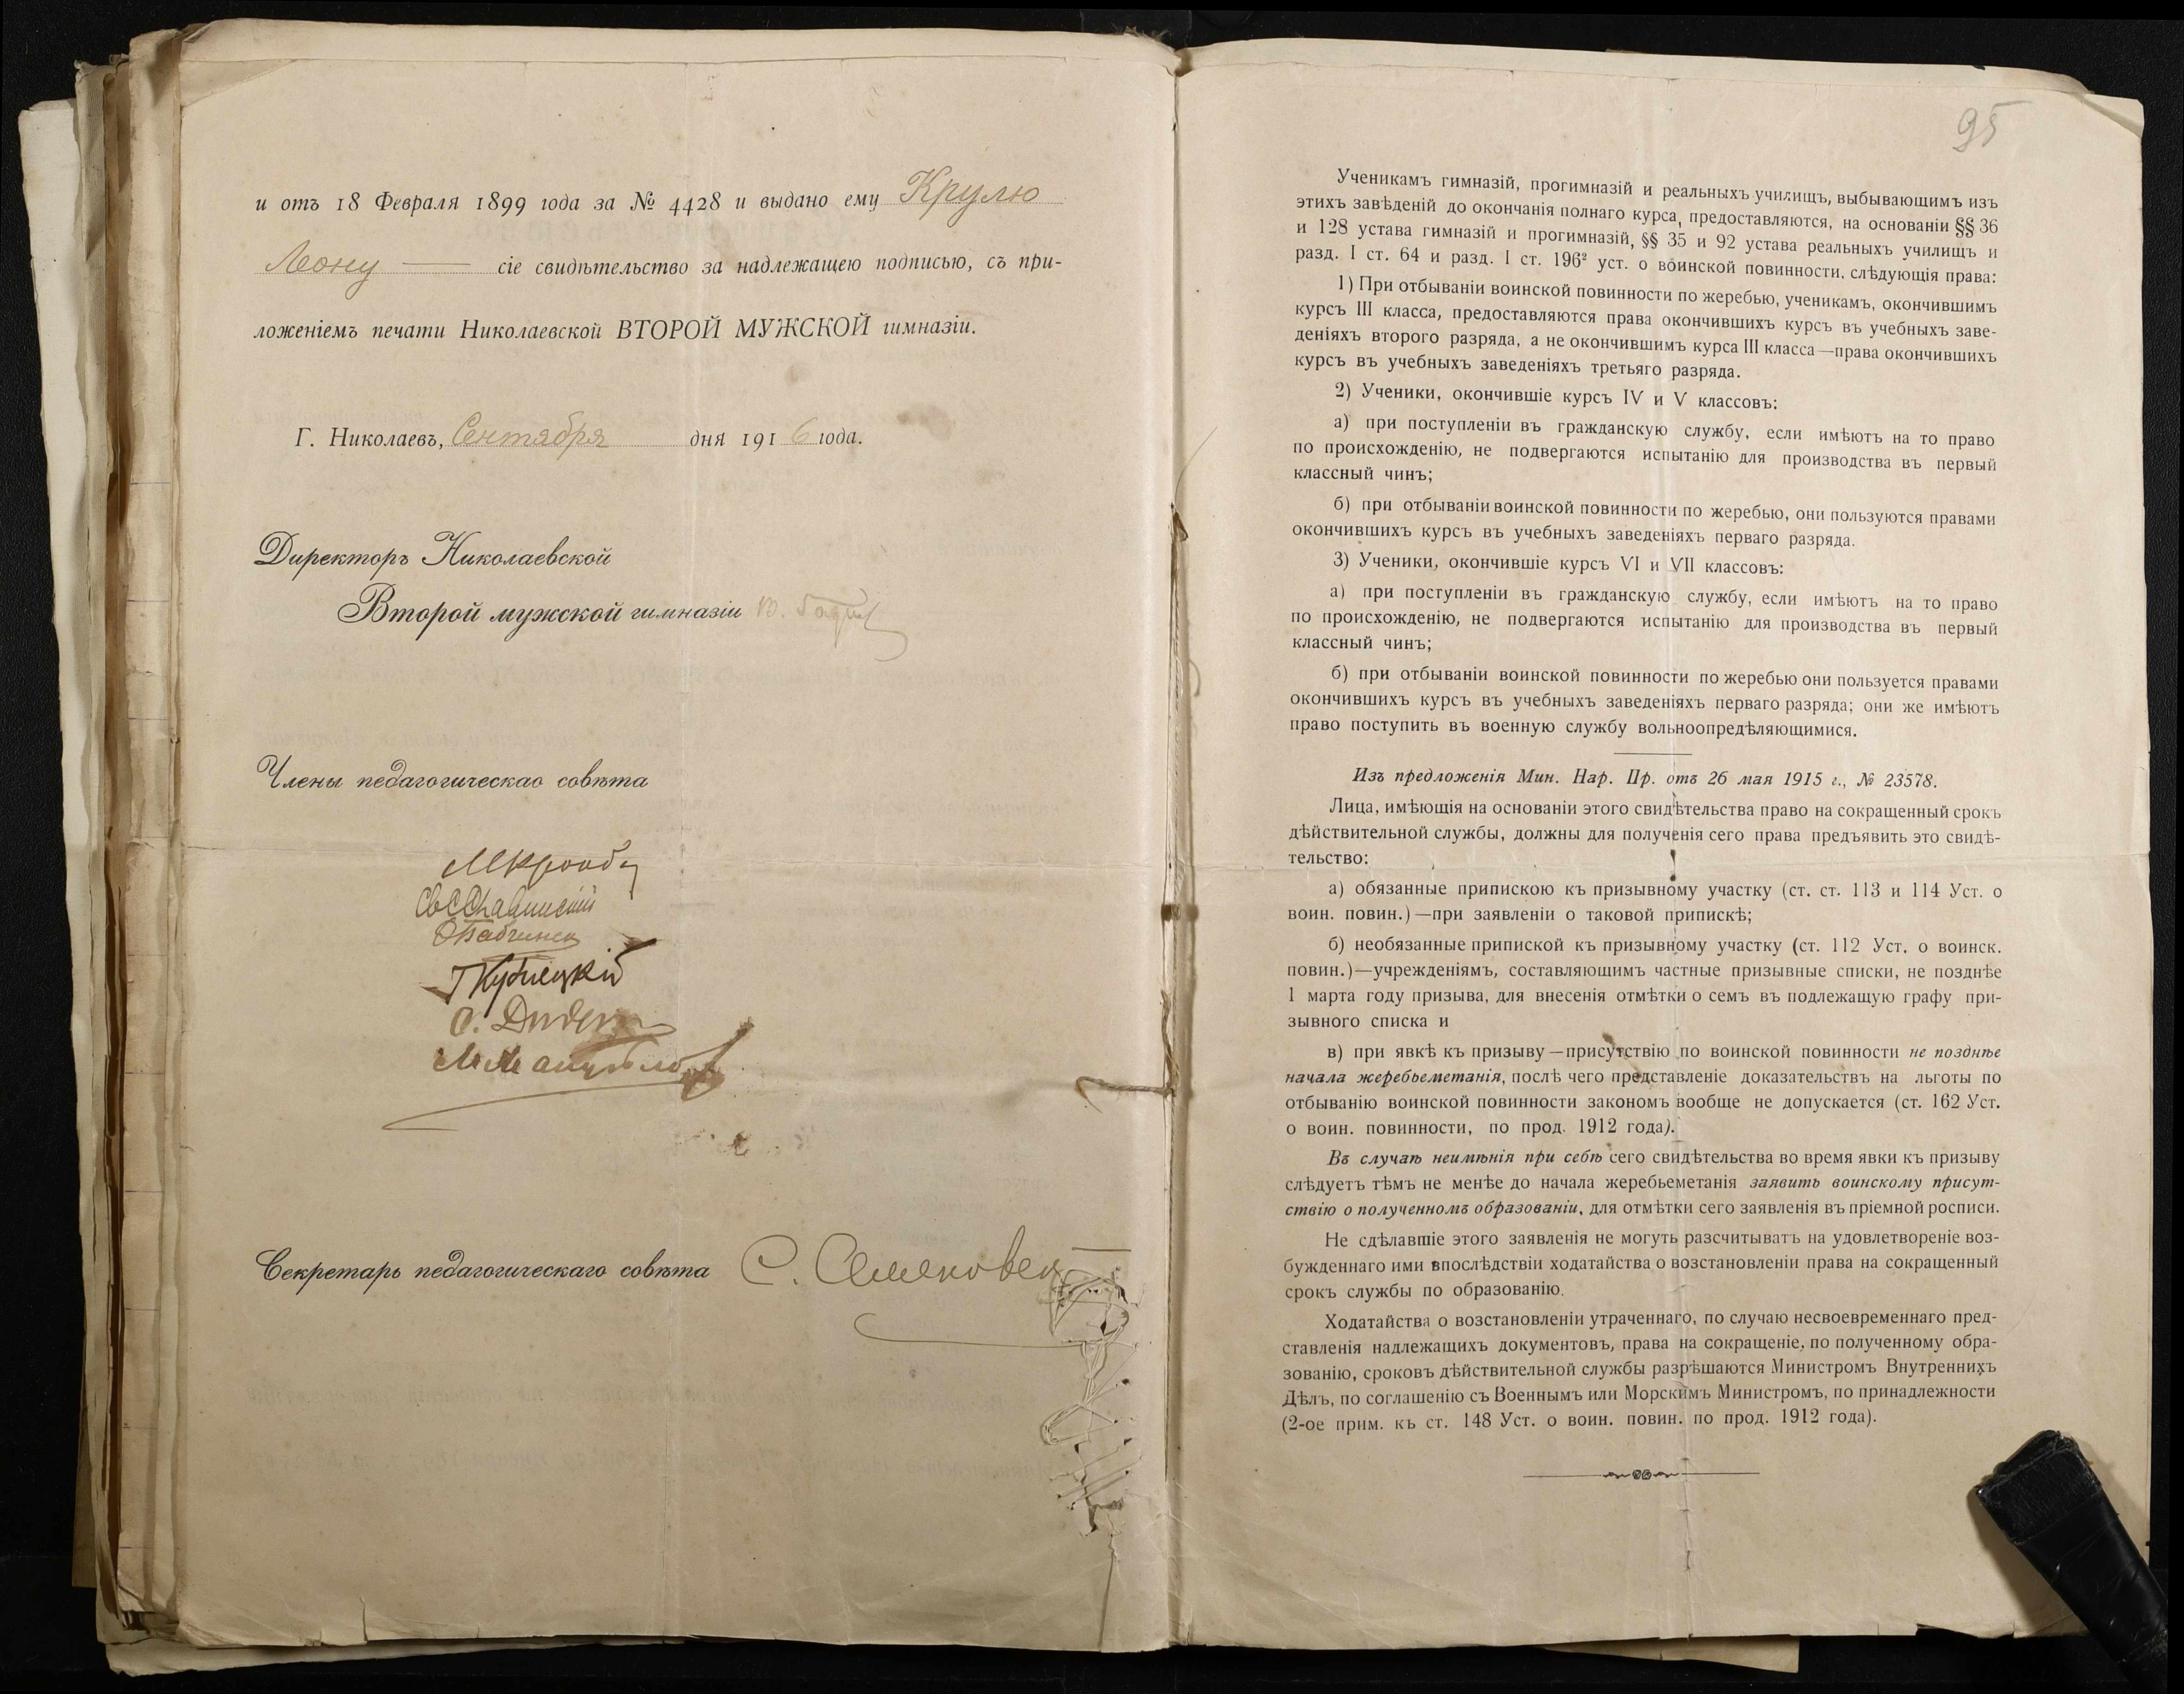 и отъ 18 Февраля 1899 года за № 4428 и выдано ему Крулю
Леону — сіе свидѣтельство за надлежащею подписью, съ при-
ложеніемъ печати Николаевской ВТОРОЙ МУЖСКОЙ гимназіи.
Г. Николаевъ, Сентября дня 1916 года.
Директоръ Николаевской
Второй мужской гимназіи В.
Члены педагогическао совѣта
Секретарь педагогическаго совѣта С.
95
Ученикамъ гимназій, прогимназій и реальныхъ училищъ, выбывающимъ изъ
этихъ завѣденій до окончанія полнаго курса, предоставляются, на основаніи §§ 36
и 128 устава гимназій и прогимназій, §§ 35 и 92 устава реальныхъ училищъ и
разд. I ст. 64 и разд. I ст. 196² уст. о воинской повинности, слѣдующія права:
1) При отбываніи воинской повинности по жеребью, ученикамъ, окончившимъ
курсъ III класса, предоставляются права окончившихъ курсъ въ учебныхъ заве-
деніяхъ второго разряда, а не окончившимъ курса III класса—права окончившихъ
курсъ въ учебныхъ заведеніяхъ третьяго разряда.
2) Ученики, окончившіе курсъ IV и V классовъ:
а) при поступленіи въ гражданскую службу, если имѣютъ на то право
по происхожденію, не подвергаются испытанію для производства въ первый
классный чинъ;
б) при отбываніи воинской повинности по жеребью, они пользуются правами
окончившихъ курсъ въ учебныхъ заведеніяхъ перваго разряда.
3) Ученики, окончившіе курсъ VI и VII классовъ:
а) при поступленіи въ гражданскую службу, если имѣютъ на то право
по происхожденію, не подвергаются испытанію для производства въ первый
классный чинъ;
б) при отбываніи воинской повинности по жеребью они пользуется правами
окончившихъ курсъ въ учебныхъ заведеніяхъ перваго разряда; они же имѣютъ
право поступить въ военную службу вольноопредѣляющимися.
Изъ предложенія Мин. Нар. Пр. отъ 26 мая 1915 г., № 23578.
Лица, имѣющія на основаніи этого свидѣтельства право на сокращенный срокъ
дѣйствительной службы, должны для полученія сего права предъявить это свидѣ-
тельство:
а) обязанные припискою къ призывному участку (ст. ст. 113 и 114 Уст. о
воин. повин.)—при заявленіи о таковой припискѣ;
б) необязанные припиской къ призывному участку (ст. 112 Уст. о воинск.
повин.)—учрежденіямъ, составляющимъ частные призывные списки, не позднѣе
1 марта году призыва, для внесенія отмѣтки о семъ въ подлежащую графу при-
зывного списка и
в) при явкѣ къ призыву—присутствію по воинской повинности не позднѣе
начала жеребьеметанія, послѣ чего представленіе доказательствъ на льготы по
отбыванію воинской повинности закономъ вообще не допускается (ст. 162 Уст.
о воин. повинности, по прод. 1912 года).
Въ случаѣ неимѣнія при себѣ сего свидѣтельства во время явки къ призыву
слѣдуетъ тѣмъ не менѣе до начала жеребьеметанія заявить воинскому присут-
ствію о полученномъ образованіи, для отмѣтки сего заявленія въ пріемной росписи.
Не сдѣлавшіе этого заявленія не могутъ разсчитывать на удовлетвореніе воз-
бужденнаго ими впослѣдствіи ходатайства о возстановленіи права на сокращенный
срокъ службы по образованію.
Ходатайства о возстановленіи утраченнаго, по случаю несвоевременнаго пред-
ставленія надлежащихъ документовъ, права на сокращеніе, по полученному обра-
зованію, сроковъ дѣйствительной службы разрѣшаются Министромъ Внутреннихъ
Дѣлъ, по соглашенію съ Военнымъ или Морскимъ Министромъ, по принадлежности
(2-ое прим. къ ст. 148 Уст. о воин. повин. по прод. 1912 года).